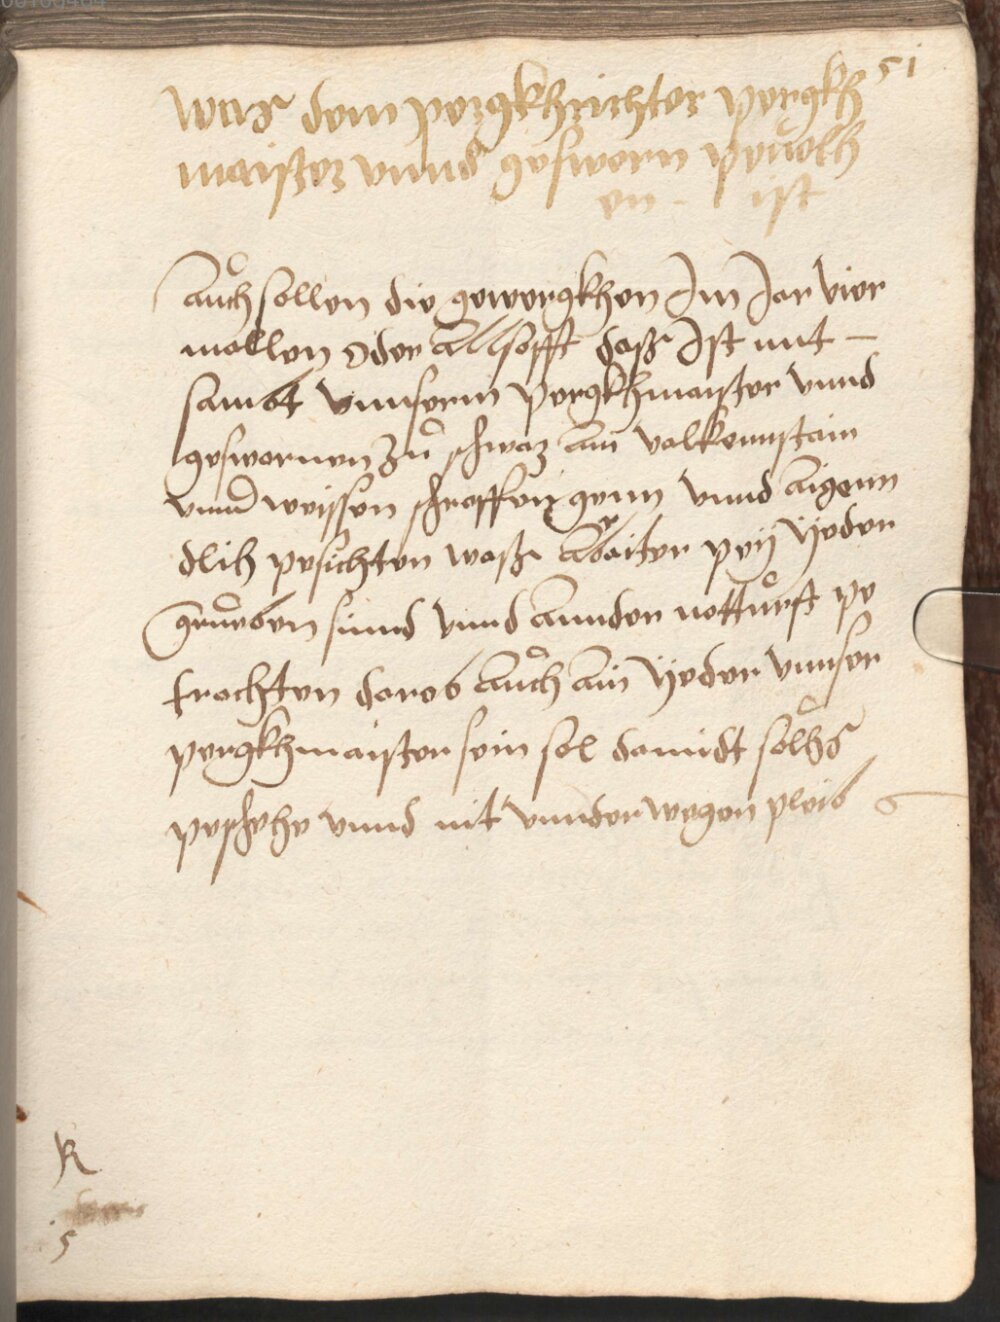 51
Was dem pergkhrichter pergkh
maister vnnd gesworn peuolh
en - ist
Auch sollen die gewergkhen Im Jar vier
mallen oder Allsofft daß Ist mit –
sambt vnnserm pergkhmaister vnnd
geswornen zů schwaz am valkennstain
vnnd weyssen schroffen genn vnnd aigenn
dlich pesichten waß Arbaiter peÿ ÿeder
grůeben sinnd vnnd annder notturfft pe
trachten darob Auch ain ÿeder vnnser
pergkhmaister sein sol damidt solhs
peschehe vnnd nit vnnderwegen pleib
R
5